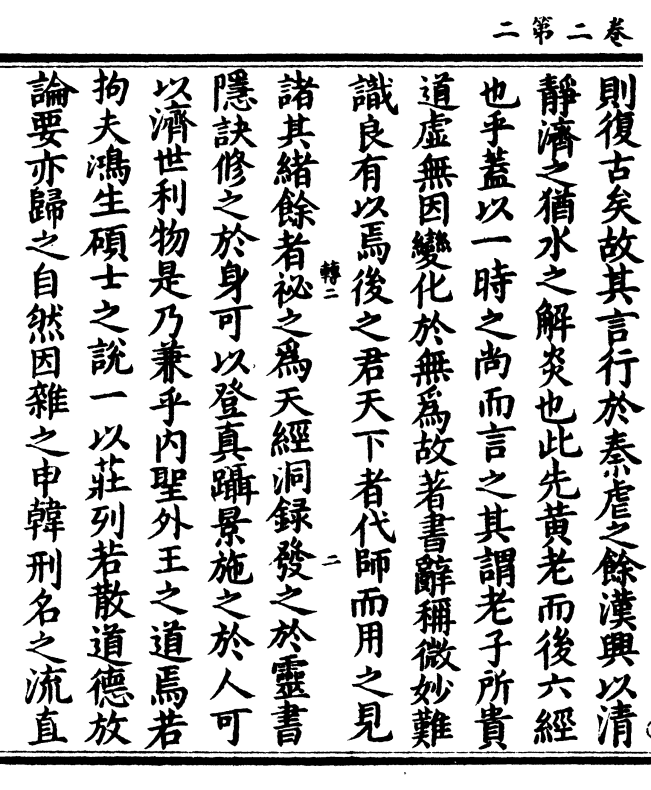 卷二第二
則復古矣故其言行於秦虐之餘漢興以清
靜濟之猶水之解炎也此先黃老而後六經
也乎蓋以一時之尚而言之其謂老子所貴
道虛無因變化於無爲故著書辭稱微妙難
識良有以焉後之君天下者代師而用之見
轉二
二
諸其緒餘者祕之爲天經洞録發之於靈書
隱訣修之於身可以登真躡景施之於人可
以濟世利物是乃兼乎內聖外王之道焉若
拘夫鴻生碩士之說一以莊列若散道德放
論要亦歸之自然因雜之申韓刑名之流直